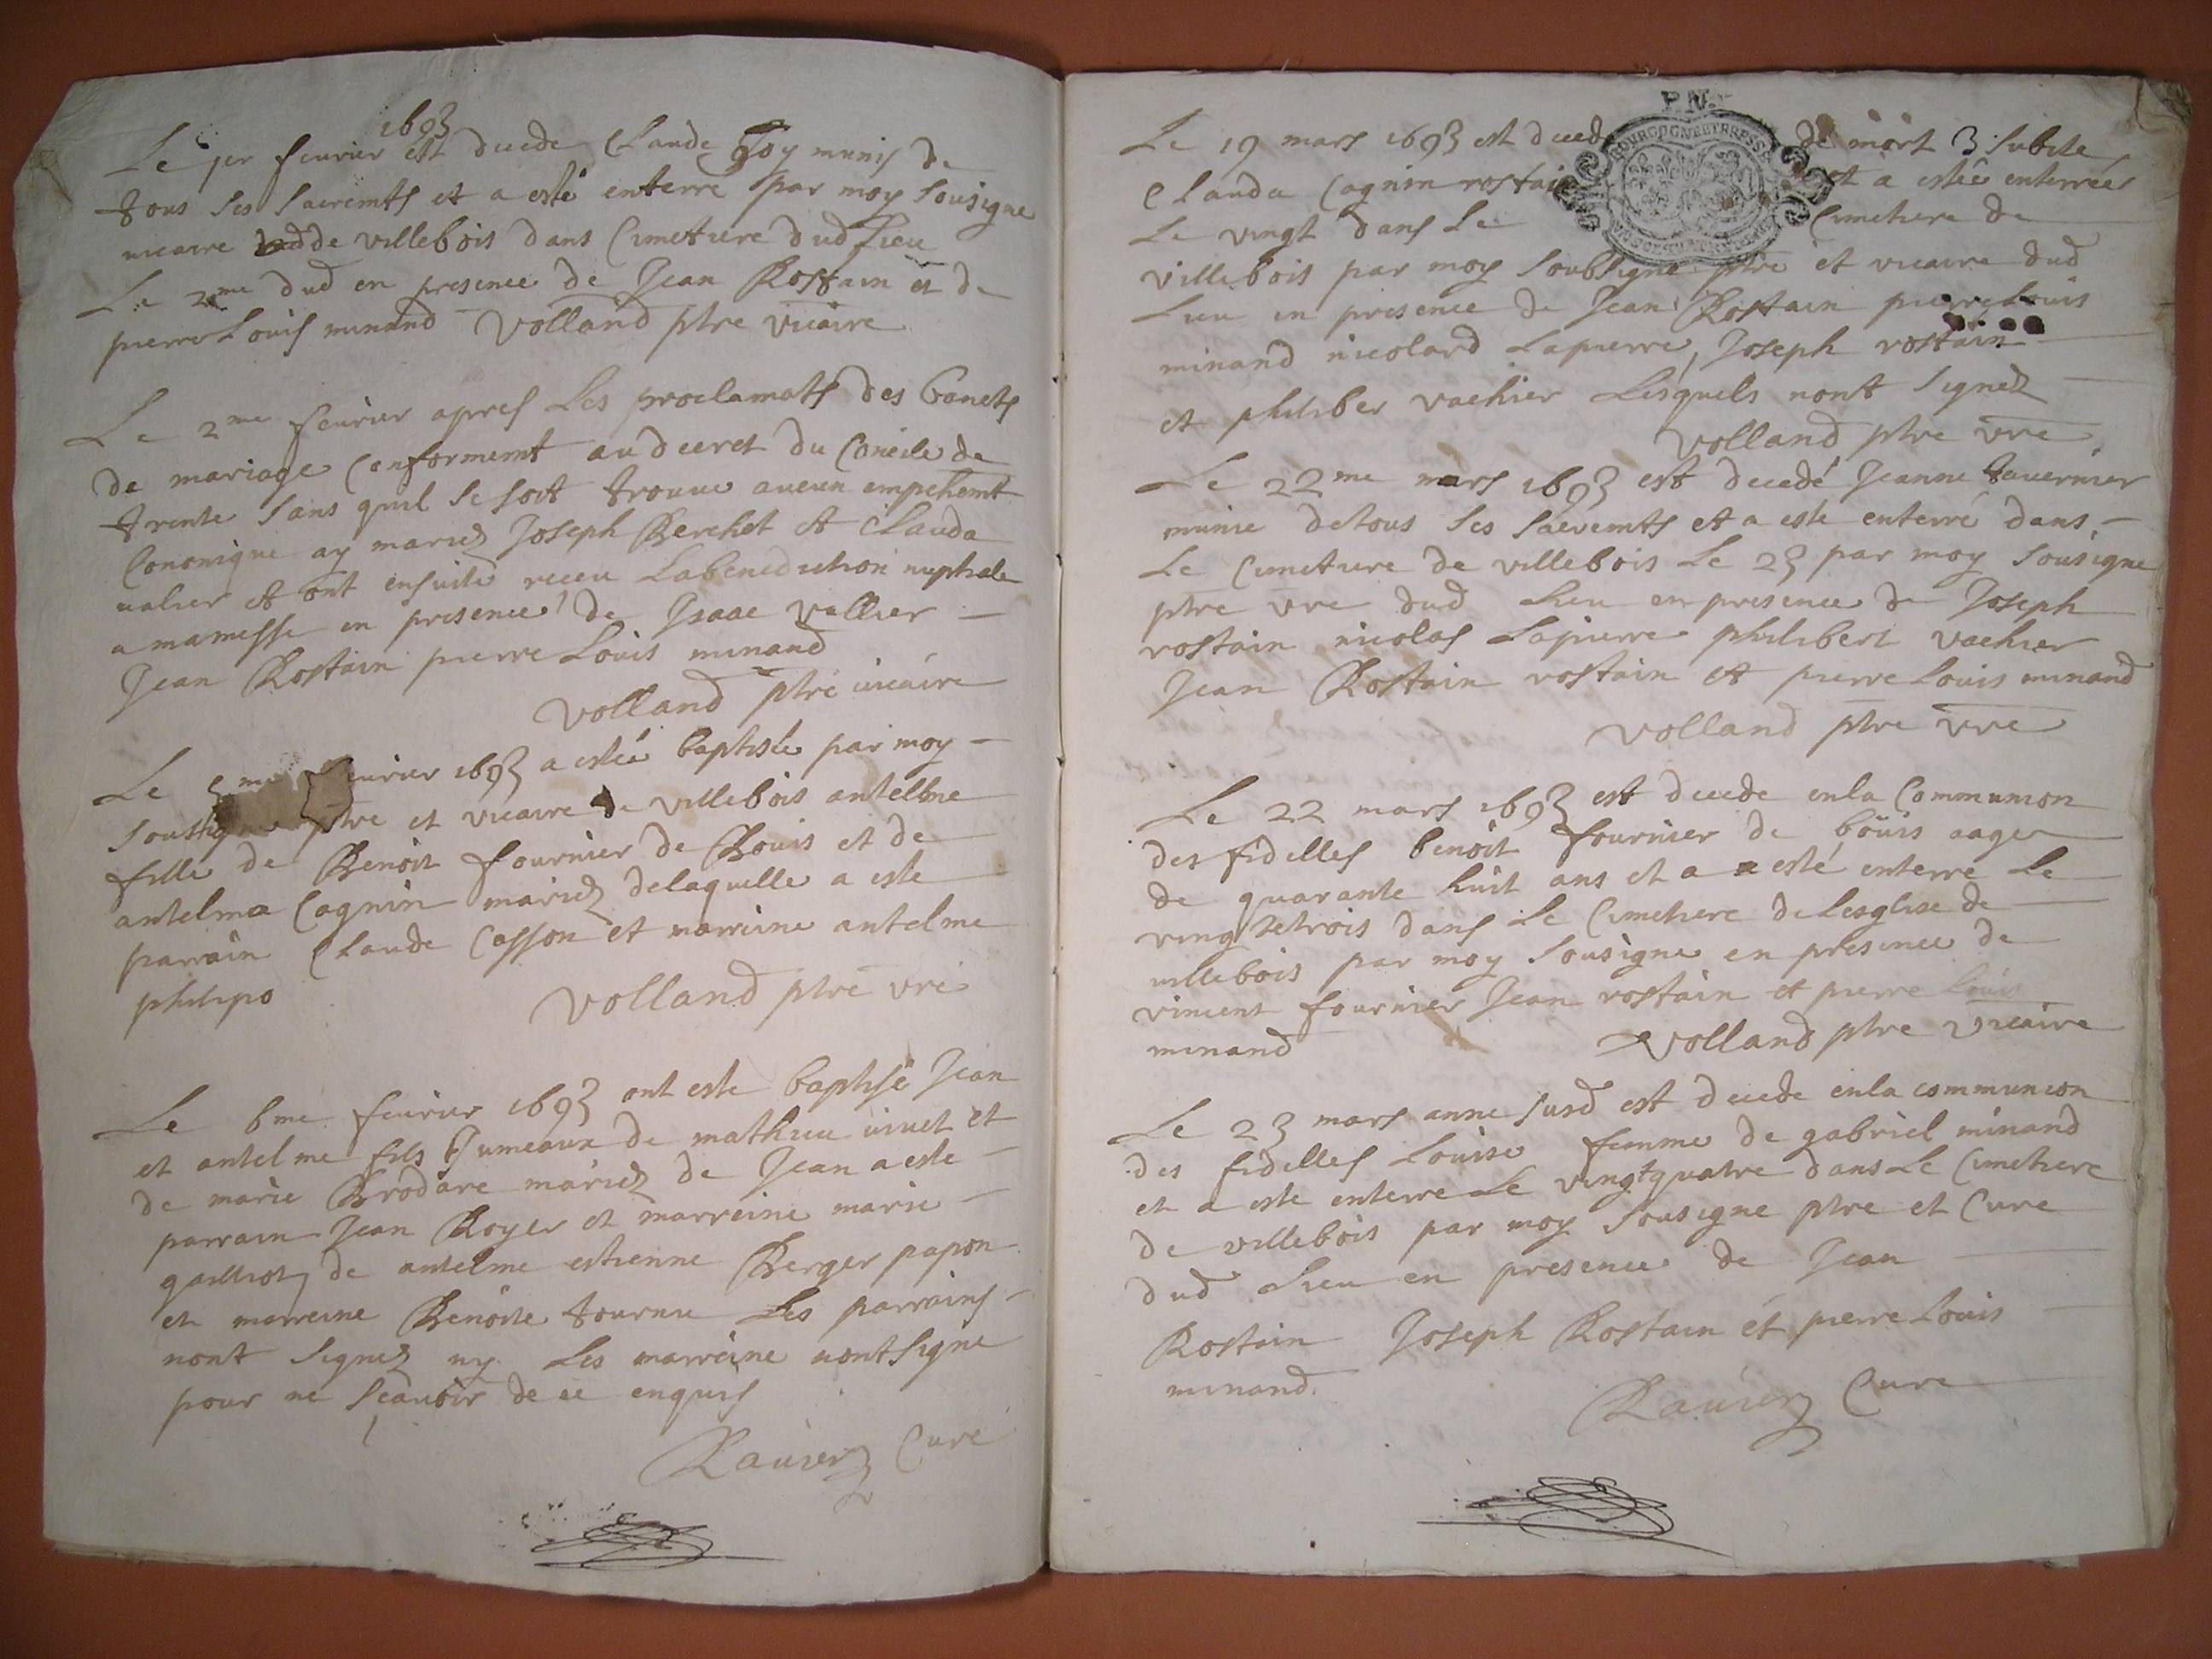 1693
Le 1er feurier est decede Claude Goy munis de
tous ses sacremts et a esté enterre par moy sousigne
uicaire de villebois dans Cimetiere dud Lieu
Le 2me dud en presence de Jean Rostain et de
pierre Louis minand Volland ptre vicaire
Le 2me feurier apres Les proclamats des bancts
de mariage Conformemt au decret du Concile de
trente sans quil se soit trouue aucun empechemt
Cononique ay mariez Joseph Berchet et Clauda
ualier et ont ensuite receu Labenediction nuptiale
a mamesse en presence de Isaac vallier
Jean Rostain pierre Louis minand
Volland ptre uicaire
Le 5me feurier 1693 a estée baptisée par moy
soussigne ptre et vicaire de villebois antelme
fille de Benoit fournier de Bouis et de
antelma Cagnin mariez delaquelle a este
parrain Claude Casson et marreine antelme
philipo
Volland ptre vre
Le 6me feurier 1693 ont este baptisé Jean
et antelme fils Jumeaux de mathieu uiuet et
de marie Brodare mariez de Jean a este
parrain Jean Royer et marreine marie
de antelme estienne Berger papon
et marreine Benoite tournie Les parrains
nont signez ny Les marreine nont signe
pour ne scauoir de ce enquis
Rauier Curé
P.N.
BOURGOGNE ET BRESSE
Le 19 mars 1693 est decede de mort 3 subite
Clauda Cagnin rostain et a estée enterrée
Le vingt dans Le Cimetiere de
villebois par moy soubsigne ptre et vicaire dud
Lieu en presence de Jean Rostain pierre Louis
minand nicolard Lapierre, Joseph rostain
et philiber vachier Lesquels nont signez
Volland ptre vre
Le 22me mars 1693 est decedé Jeanne tauernier
munie detous ses sacremts et a este enterré dans
Le Cimetiere de villebois Le 23 par moy sousigne
ptre vre dud Lieu en presence de Joseph
rostain nicolas Lapierre philibert vachier
Jean Rostain rostain et pierre Louis minand
Volland ptre vre
Le 22 mars 1693 est decede enla Communion
des fidelles benoit fournier de boüis aage
de quarante huit ans et a a esté enterre Le
vingtetrois dans Le Cimetiere de Lesglise de
uillebois par moy sousigne en presence de
vincent fournier Jean rostain et pierre Louis
minand Volland ptre vicaire
Le 23 mars anne susd est decede enla communion
des fidelles Louise femme de gabriel minand
et a este enterre Le vingtquatre dans Le Cimetiere
de villebois par moy sousigne ptre et Cure
dud Lieu en presence de Jean
Rostain Joseph Rostain et pierre Louis
minand.
Rauier Cure